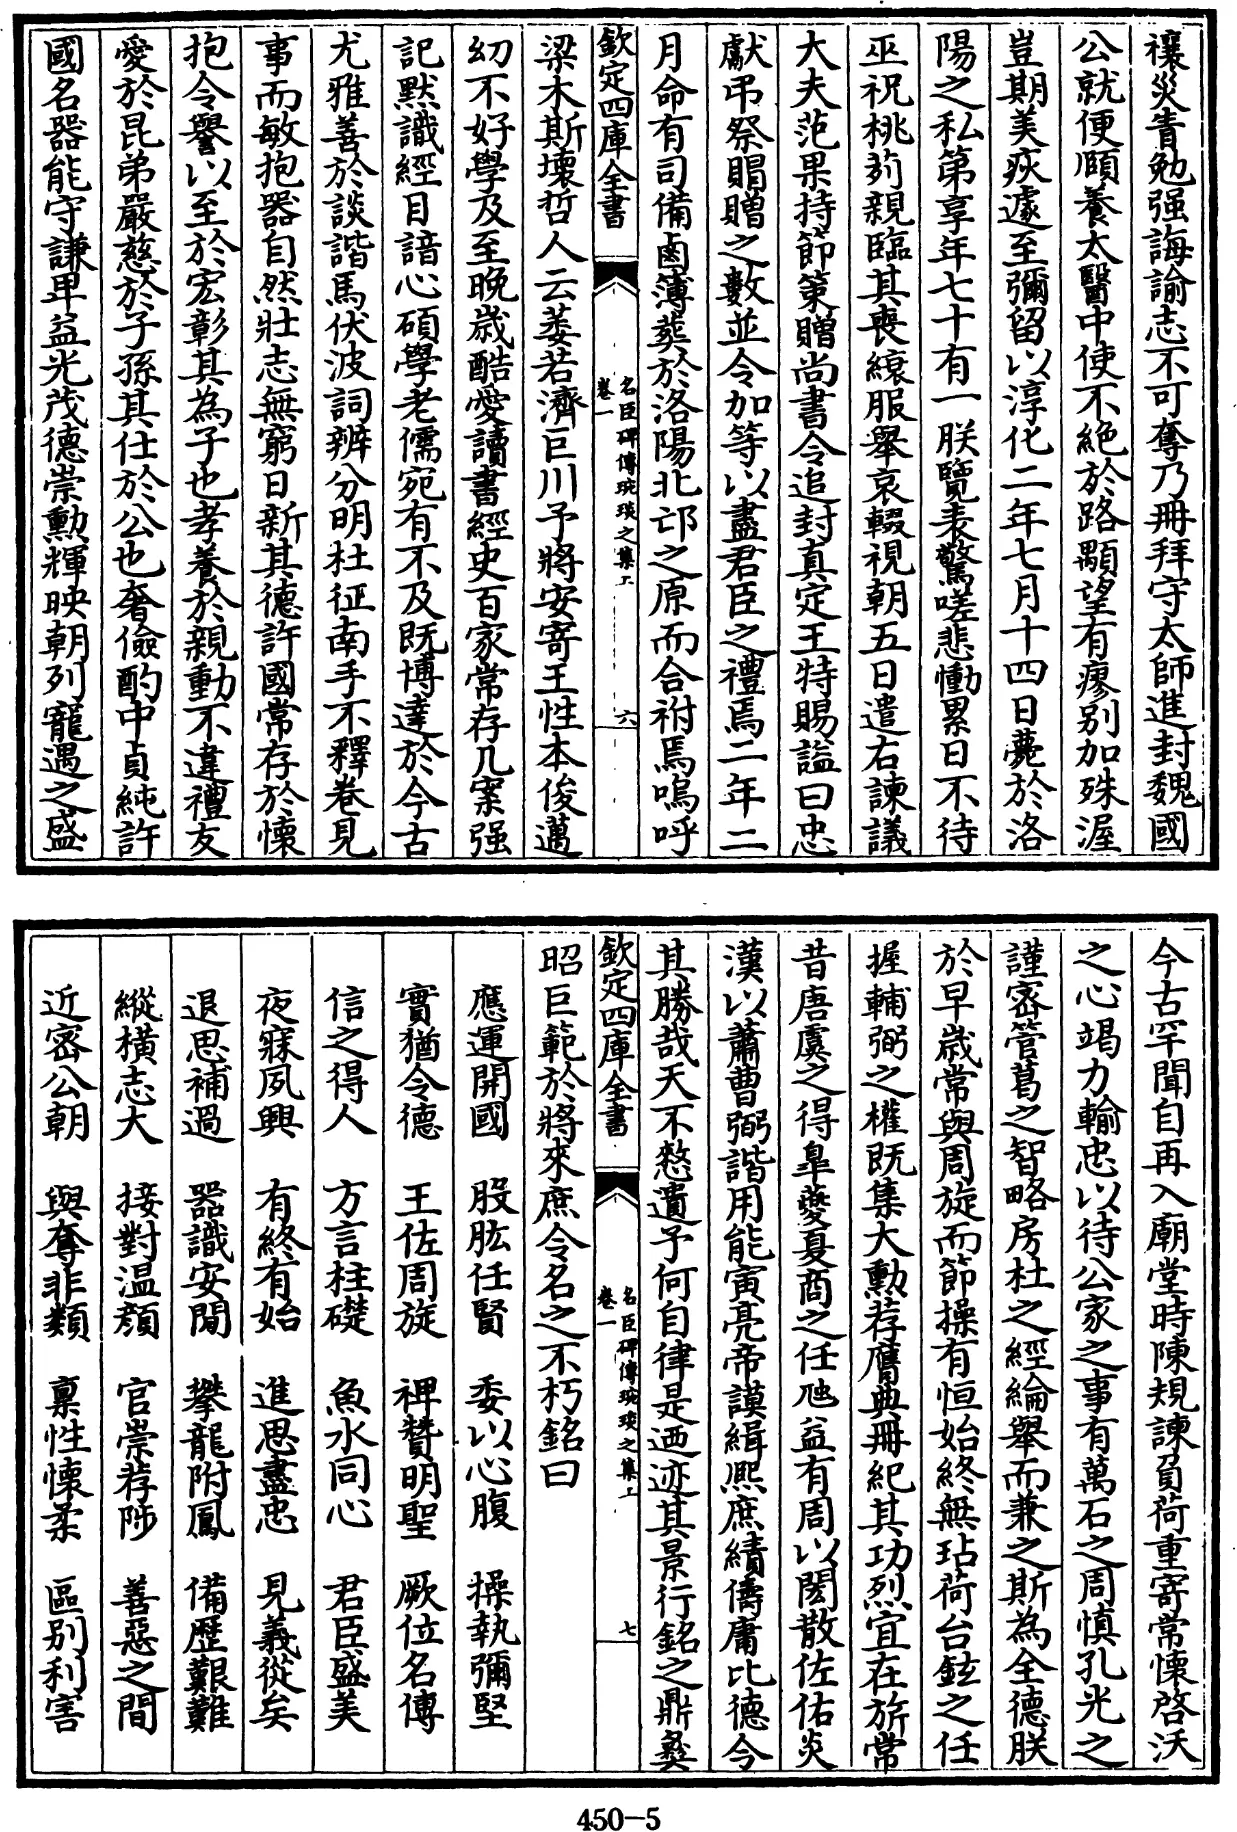 禳災眚勉强誨諭志不可奪乃冊拜守太師進封魏國
公就便頤養太醫中使不絶於路顒望有瘳别加殊渥
豈期美疢遽至彌留以淳化二年七月十四日薨於洛
陽之私第享年七十有一朕覽表驚嗟悲慟累日不待
巫祝桃茢親臨其喪縗服舉哀輟視朝五日遣右諫議
大夫范杲持節䇿贈尚書令追封真定王特賜諡曰忠
獻弔祭賵贈之數並令加等以盡君臣之禮焉二年二
月命有司備鹵簿葬於洛陽北邙之原而合祔焉嗚呼
欽定四庫全書
名臣碑傳琬琰之集上
卷一
六
梁木斯壞哲人云萎若濟巨川予將安寄王性本俊邁
幼不好學及至晩歲酷愛讀書經史百家常存几案强
記黙識經目諳心碩學老儒宛有不及既博達於今古
尤雅善於談諧馬伏波詞辨分明杜征南手不釋卷見
事而敏抱器自然壯志無窮日新其德許國常存於懷
抱令譽以至於宏彰其為子也孝養於親動不違禮友
愛於昆弟嚴慈於子孫其仕於公也奢儉酌中貞純許
國名器能守謙卑益光茂德崇勲輝映朝列寵遇之盛
今古罕聞自再入廟堂時陳規諫負荷重寄常懷啓沃
之心竭力輸忠以待公家之事有萬石之周慎孔光之
謹密管葛之智略房杜之經綸舉而兼之斯為全德朕
於早歲常與周旋而節操有恒始終無玷荷台鉉之任
握輔弼之權既集大勲荐膺典冊紀其功烈宜在旂常
昔唐虞之得臯夔夏商之任虺益有周以閎散佐佑炎
漢以蕭曹弼諧用能寅亮帝謨緝熙庶績儔庸比德今
其勝哉天不憖遺予何自律是迺迹其景行銘之鼎彞
欽定四庫全書
名臣碑傳琬琰之集上
卷一
七
昭巨範於將來庶令名之不朽銘曰
應運開國 股肱任賢 委以心腹 操執彌堅
實猶令德 王佐周旋 禆贊明聖 厥位名傳
信之得人 方言柱礎 魚水同心 君臣盛美
夜寐夙興 有終有始 進思盡忠 見義從矣
退思補過 器識安閒 攀龍附鳳 備歷艱難
縱横志大 接對温顔 官崇荐陟 善惡之間
近密公朝 與奪非類 稟性懷柔 區别利害
450-5